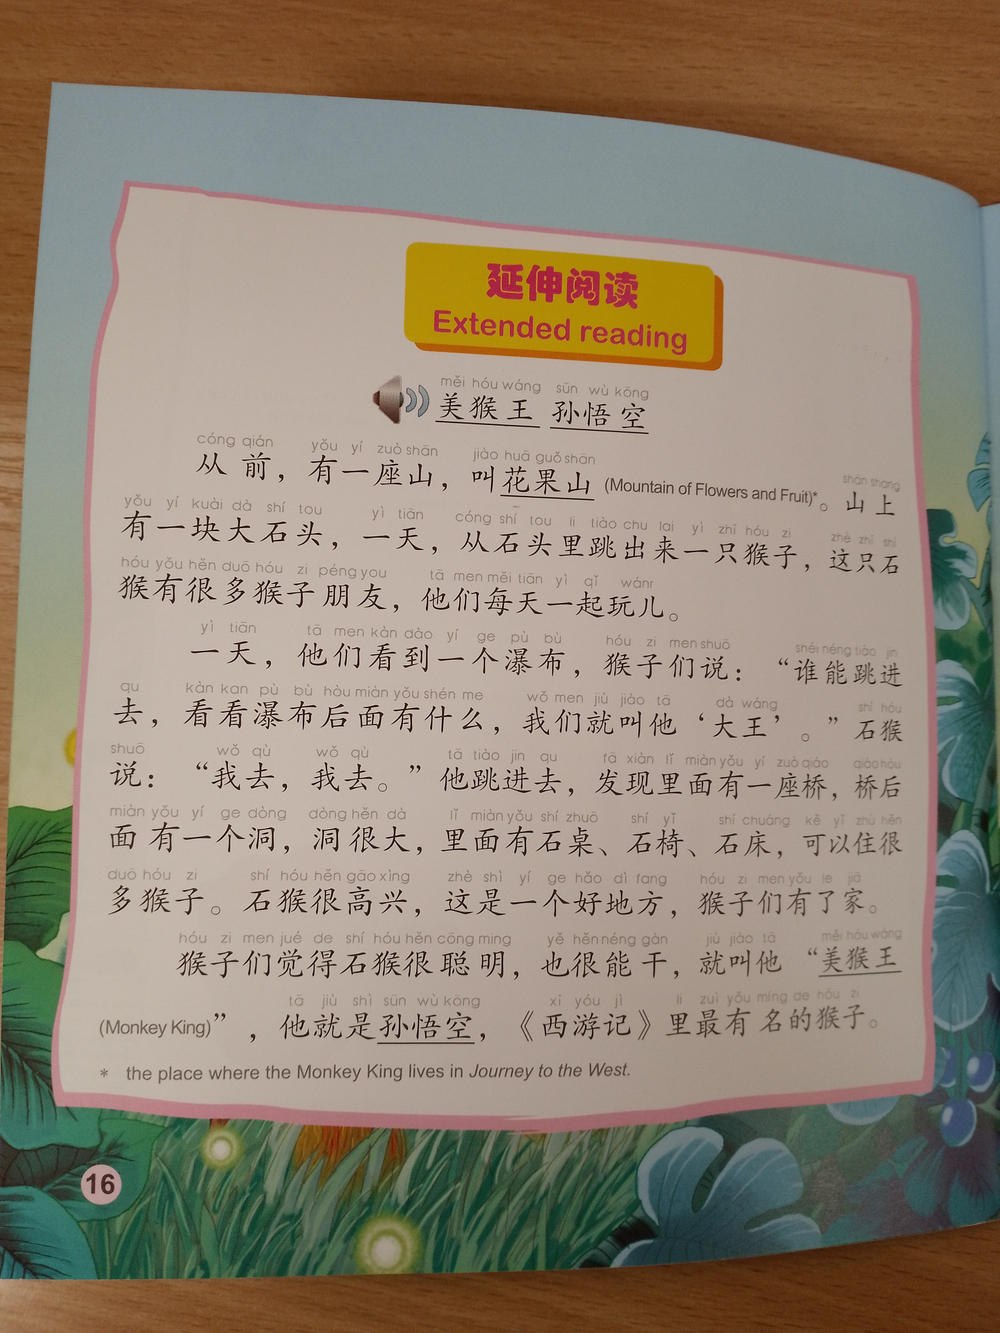 延伸阅读
Extended reading
měi hóu wáng sūn wù kōng
美猴王 孙悟空
cóng qián yǒu yí zuò shān jiào huā guǒ shān shān shang
从前，有一座山，叫花果山 (Mountain of Flowers and Fruit)*。山上
yǒu yí kuài dà shí tou yì tiān cóng shí tou li tiào chu lai yì zhī hóu zi zhè zhī shí
有一块大石头，一天，从石头里跳出来一只猴子，这只石
hóu yǒu hěn duō hóu zi péng you tā men měi tiān yì qǐ wánr
猴有很多猴子朋友，他们每天一起玩儿。
yì tiān tā men kàn dào yí ge pù bù hóu zi men shuō shéi néng tiào jin
一天，他们看到一个瀑布，猴子们说：“谁能跳进
qu kàn kan pù bù hòu miàn yǒu shén me wǒ men jiù jiào tā dà wáng shí hóu
去，看看瀑布后面有什么，我们就叫他‘大王’。”石猴
shuō wǒ qù wǒ qù tā tiào jin qu fā xiàn lǐ miàn yǒu yí zuò qiáo qiáo hóu
说：“我去，我去。”他跳进去，发现里面有一座桥，桥后
miàn yǒu yí ge dòng dòng hěn dà lǐ miàn yǒu shí zhuō shí yǐ shí chuáng kě yǐ zhù hěn
面有一个洞，洞很大，里面有石桌、石椅、石床，可以住很
duō hóu zi shí hóu hěn gāo xìng zhè shì yí ge hǎo dì fang hóu zi men yǒu le jiā
多猴子。石猴很高兴，这是一个好地方，猴子们有了家。
hóu zi men jué de shí hóu hěn cōng ming yě hěn néng gàn jiù jiào tā měi hóu wáng
猴子们觉得石猴很聪明，也很能干，就叫他“美猴王
tā jiù shì sūn wù kōng xī yóu jì li zuì yǒu míng de hóu zi
(Monkey King)”，他就是孙悟空，《西游记》里最有名的猴子。
* the place where the Monkey King lives in Journey to the West.
16